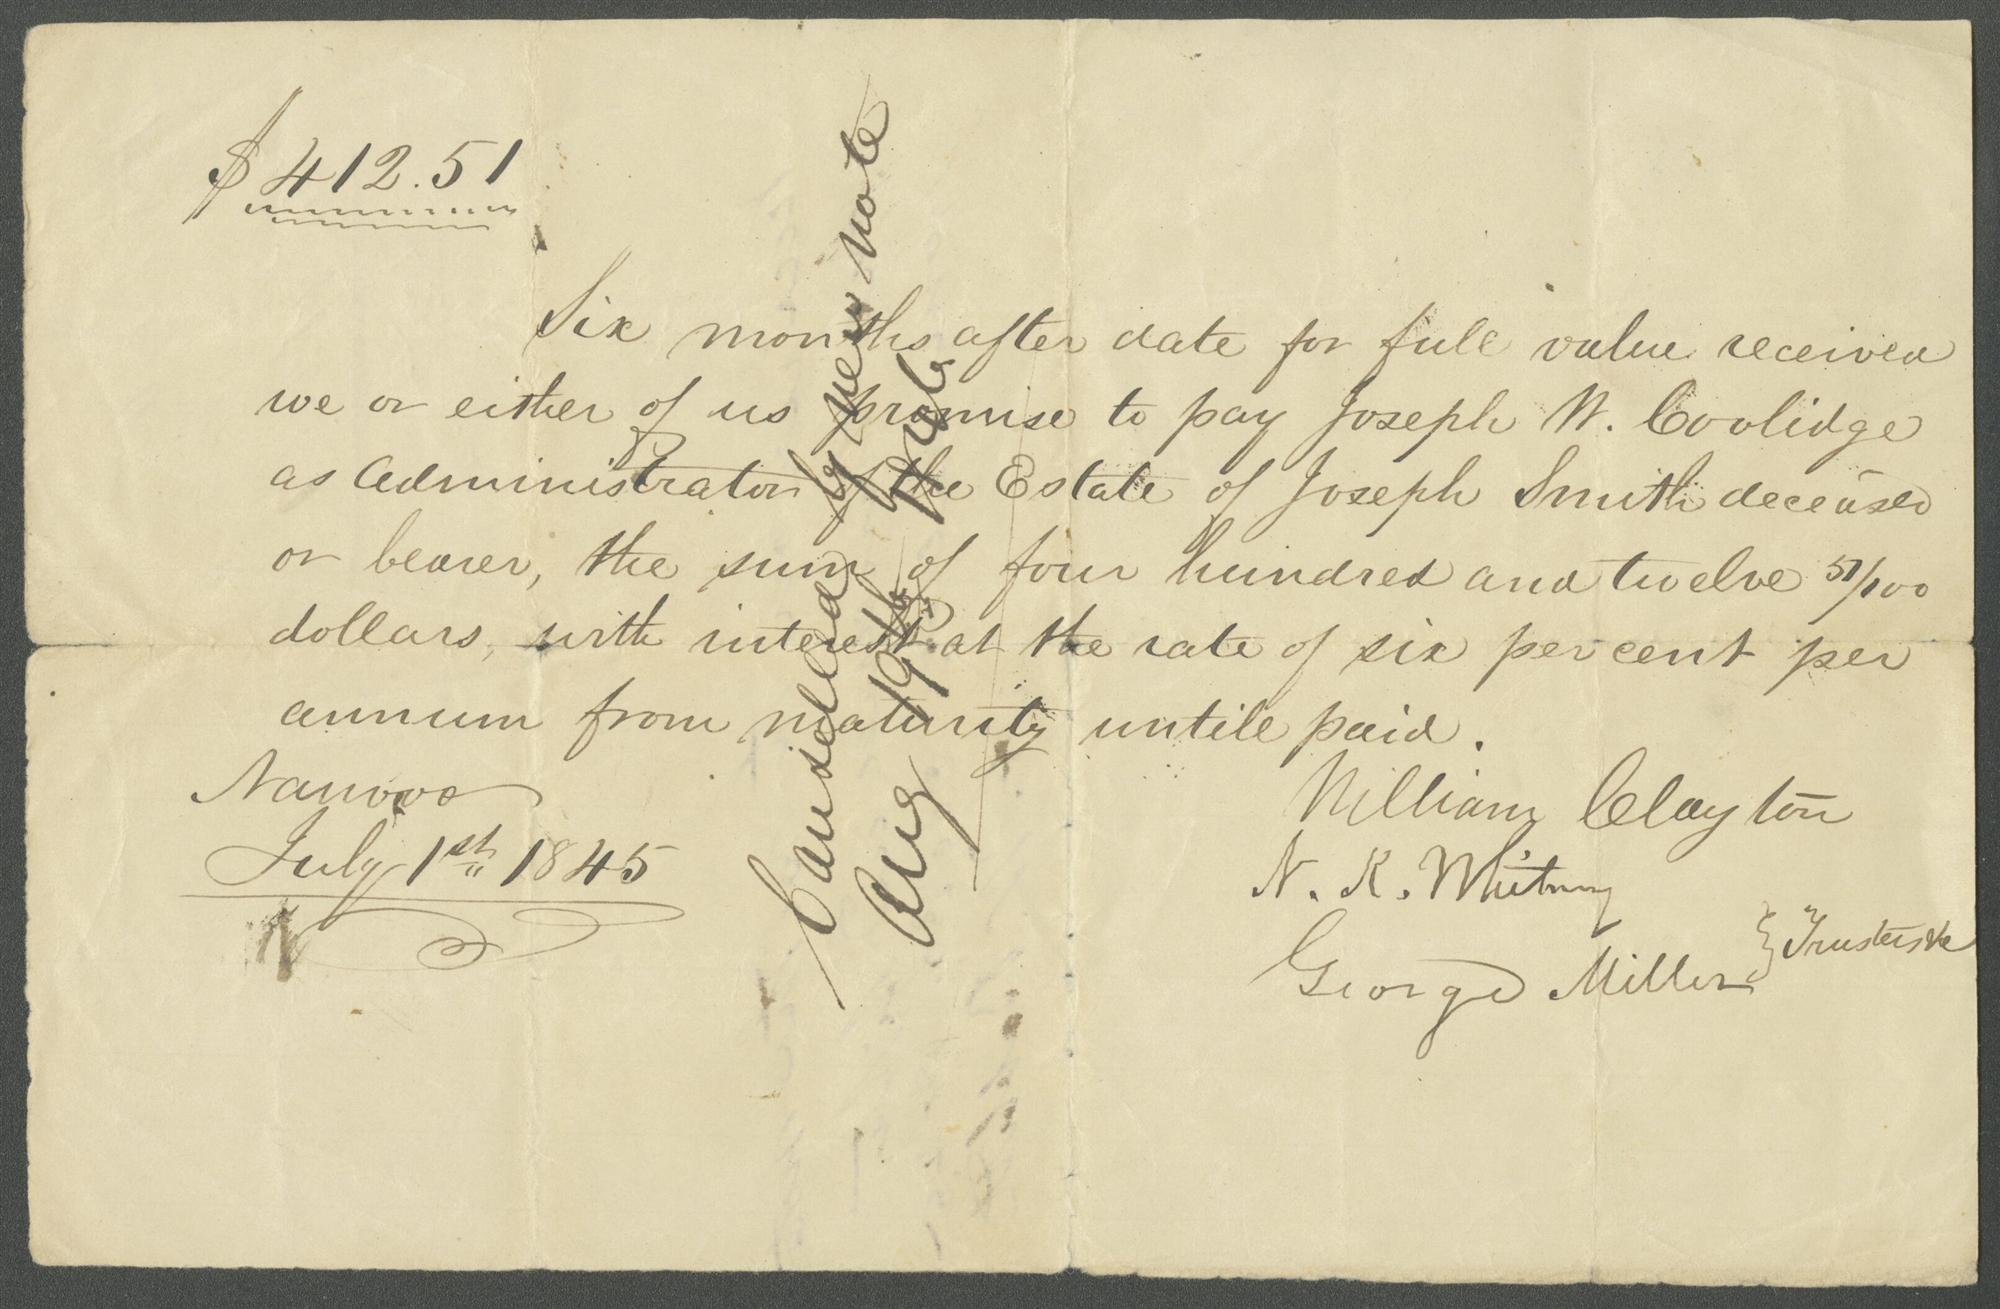 $412.51
Six months after date for full value received
we or either of us promise to pay Joseph W. Coolidge
as Administrator of the Estate of Joseph Smith deceased
or bearer, the sum of four hundred and twelve 51/100
dollars, with interest at the rate of six per cent per
annum from maturity untill paid.
Nauvoo
July 1st 1845
William Clayton
N. K. Whitney
George Miller } Trustees &c
Canselled by new note
Aug 19th